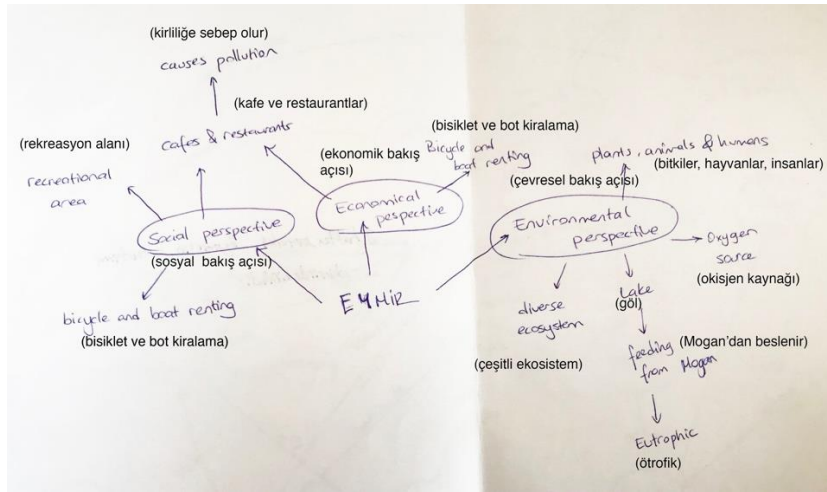 (kirliliğe sebep olur)
causes pollution
(kafe ve restaurantlar)
cafes & restaurants
(rekreasyon alanı)
recreational
area
Social perspective
(sosyal bakış açısı)
bicycle and boat renting
(bisiklet ve bot kiralama)
(ekonomik bakış
açısı)
Economical
pespective
(bisiklet ve bot kiralama)
Bicycle and
boat renting
EYMİR
plants, animals & humans
(bitkiler, hayvanlar, insanlar)
(çevresel bakış açısı)
Environmental
perspective
Oxygen
source
(okisjen kaynağı)
diverse
ecosystem
(çeşitli ekosistem)
Lake
(göl)
feeding
from Mogan
(Mogan'dan beslenir)
Eutrophic
(ötrofik)